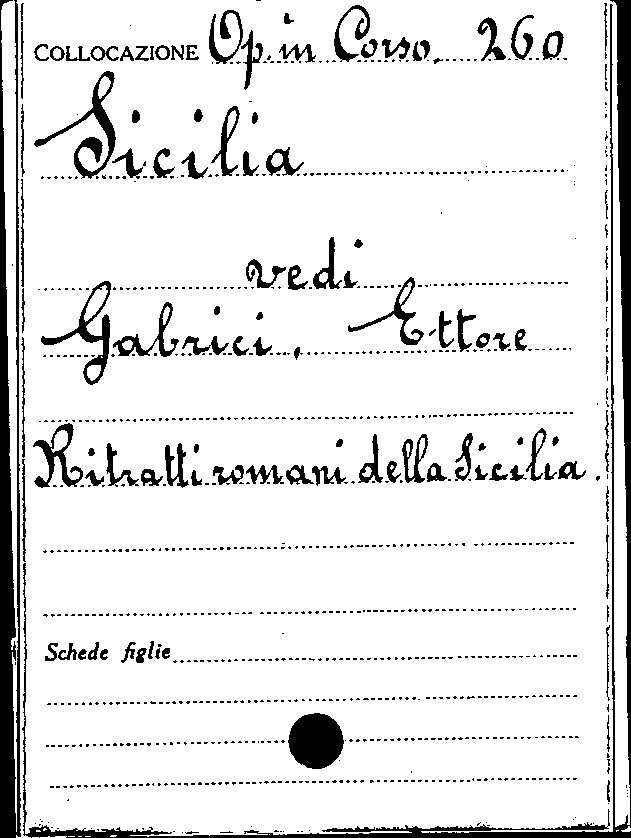 COLLOCAZIONE Op. in Corso. 260
Sicilia
vedi
Gabrici, Ettore
Ritratti romani della Sicilia.
Schede figlie